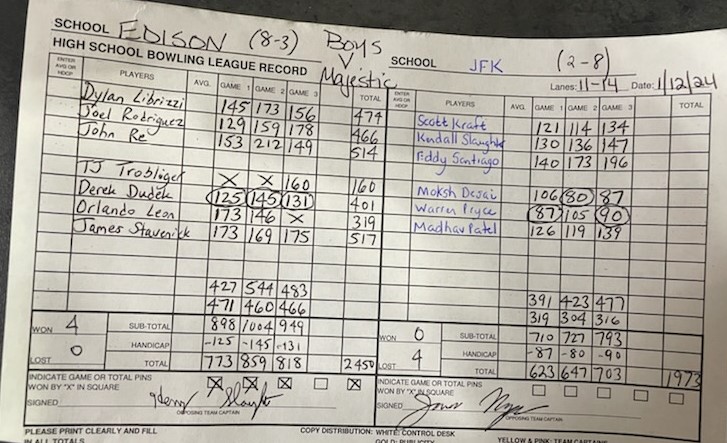 SCHOOL EDISON (8-3) Boys SCHOOL JFK (2-8)
HIGH SCHOOL BOWLING LEAGUE RECORD V Majestic Lanes: 11-14 Date: 1/12/24
ENTER AVG OR HDCP PLAYERS AVG. GAME 1 GAME 2 GAME 3 TOTAL ENTER AVG OR HDCP PLAYERS AVG. GAME 1 GAME 2 GAME 3 TOTAL
Dylan Librizzi 145 173 156 474 Scott Kraft 121 114 134
Joel Rodriguez 129 159 178 466 Kendall Slaughte 130 136 147
John Re 153 212 149 514 Eddy Santiago 140 173 196
TJ Trobliger X X 160 160
Derek Dudek 125 145 131 401 Moksh Desai 106 80 87
Orlando Leon 173 146 X 319 Warren Pryce 87 105 90
James Stavenick 173 169 175 517 Madhav Patel 126 119 139
427 544 483
471 460 466 391 423 477
319 304 316
WON 4 SUB-TOTAL 898 1004 949 WON 0 SUB-TOTAL 710 727 793
HANDICAP -125 -145 -131 HANDICAP -87 -80 -90
LOST 0 TOTAL 773 859 818 2450 LOST 4 TOTAL 623 647 703 1973
INDICATE GAME OR TOTAL PINS WON BY "X" IN SQUARE X X X X INDICATE GAME OR TOTAL PINS WON BY "X" IN SQUARE
SIGNED OPPOSING TEAM CAPTAIN SIGNED OPPOSING TEAM CAPTAIN
PLEASE PRINT CLEARLY AND FILL COPY DISTRIBUTION: WHITE: CONTROL DESK
IN ALL TOTALS GOLD: PUBLICITY YELLOW & PINK: TEAM CAPTAINS